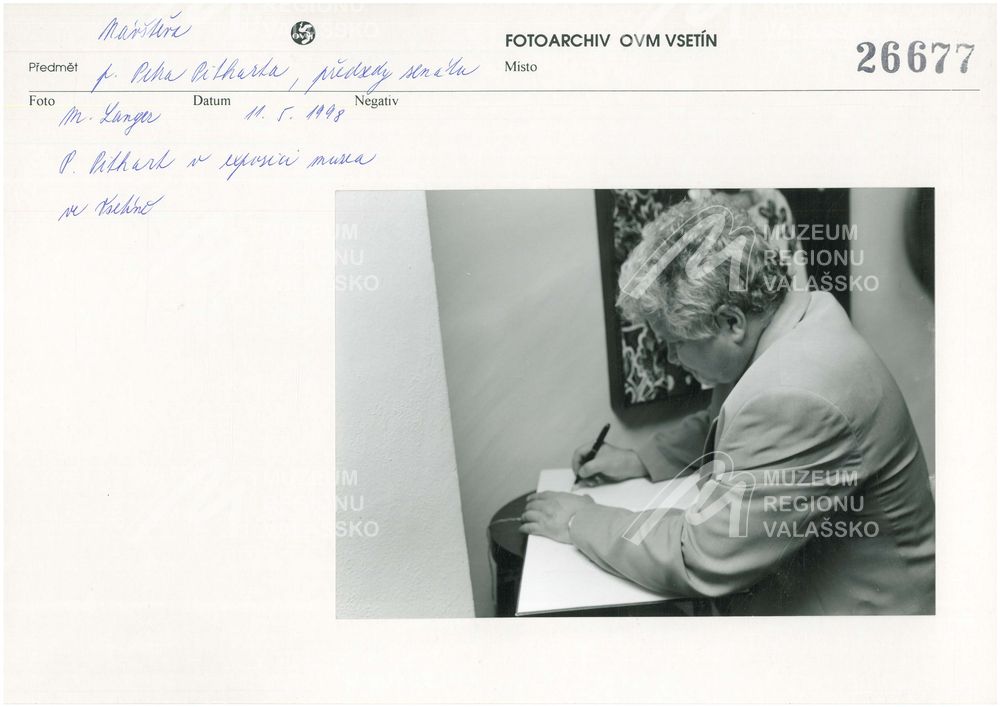 Návštěva
OVM
FOTOARCHIV OVM VSETÍN
26677
Předmět p. Petra Pitharta, předsedy senátu
Místo
Foto M. Langer Datum 11. 5. 1998 Negativ
P. Pithart v expozici muzea
ve Vsetíně
MUZEUM
REGIONU
VALAŠSKO
MUZEUM
REGIONU
VALAŠSKO